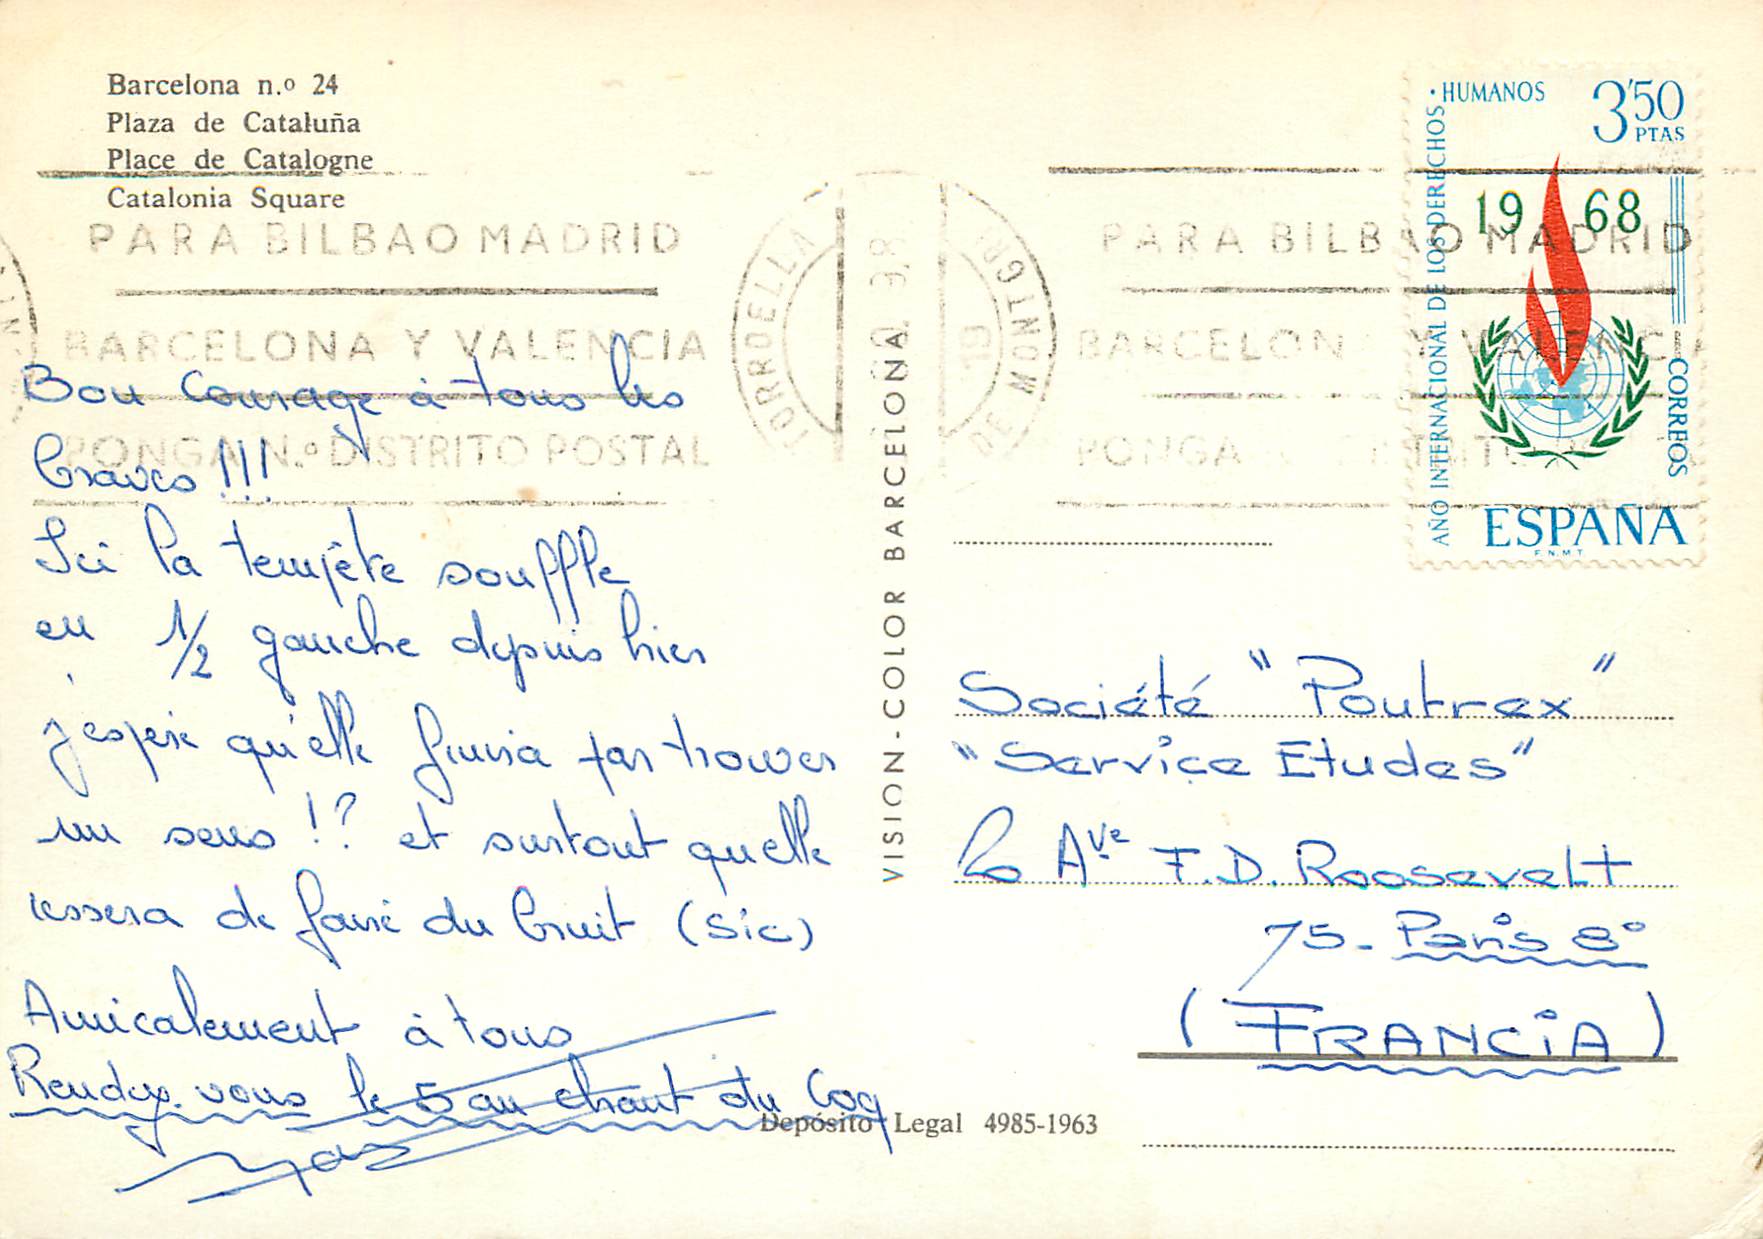 Barcelona n.º 24
Plaza de Cataluña
Place de Catalogne
Catalonia Square
PARA BILBAO MADRID
BARCELONA Y VALENCIA
PONGA N.º DISTRITO POSTAL
TORROELLA
DE MONTGRI
PARA BILBAO MADRID
BARCELONA Y VALENCIA
PONGA
AÑO INTERNACIONAL DE LOS DERECHOS
· HUMANOS
3'50
PTAS
1968
CORREOS
ESPAÑA
F.N.M.T
Bon courage à tous les
braves !!!
Ici la tempête souffle
en 1/2 gauche depuis hier
j'espère qu'elle finira par trouver
un sens !? et surtout qu'elle
cessera de faire du bruit (sic)
Amicalement à tous
Rendez-vous le 5 au chant du Coq
VISION-COLOR BARCELONA
Société "Poutrex"
"Service Etudes"
Ave F.D. Roosevelt
75- Paris 8°
(FRANCIA)
Depósito Legal 4985-1963